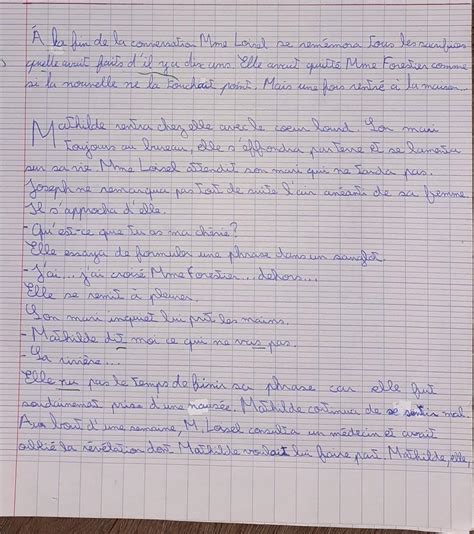 À la fin de la conversation Mme Loisel se remémora tous les sacrifices
qu'elle avait faits d'il y a dix ans. Elle avait quitté Mme Forestier comme
si la nouvelle ne la touchait point. Mais une fois rentré à la maison...
Mathilde rentra chez elle avec le coeur lourd. Son mari
toujours au bureau, elle s'effondra par terre et se lamenta
sur sa vie. Mme Loisel attendit son mari qui ne tarda pas.
Joseph ne remarqua pas tout de suite l'air anéanti de sa femme
Il s'approcha d'elle.
- Qu'est-ce que tu as ma chérie?
Elle essaya de formuler une phrase dans un sanglot.
- J'ai... j'ai croisé Mme Forestier... dehors...
Elle se remit à pleurer.
Son mari inquiet lui prit les mains.
- Mathilde dit moi ce qui ne vas pas.
- La rivière...
Elle nu pas le temps de finir sa phrase car elle fut
soudainement prise d'une nausée. Mathilde continua de se sentir mal.
Au bout d'une semaine, M. Loisel consulta un médecin et avait
oublié la révélation dont Mathilde voulait lui faire part. Mathilde, elle